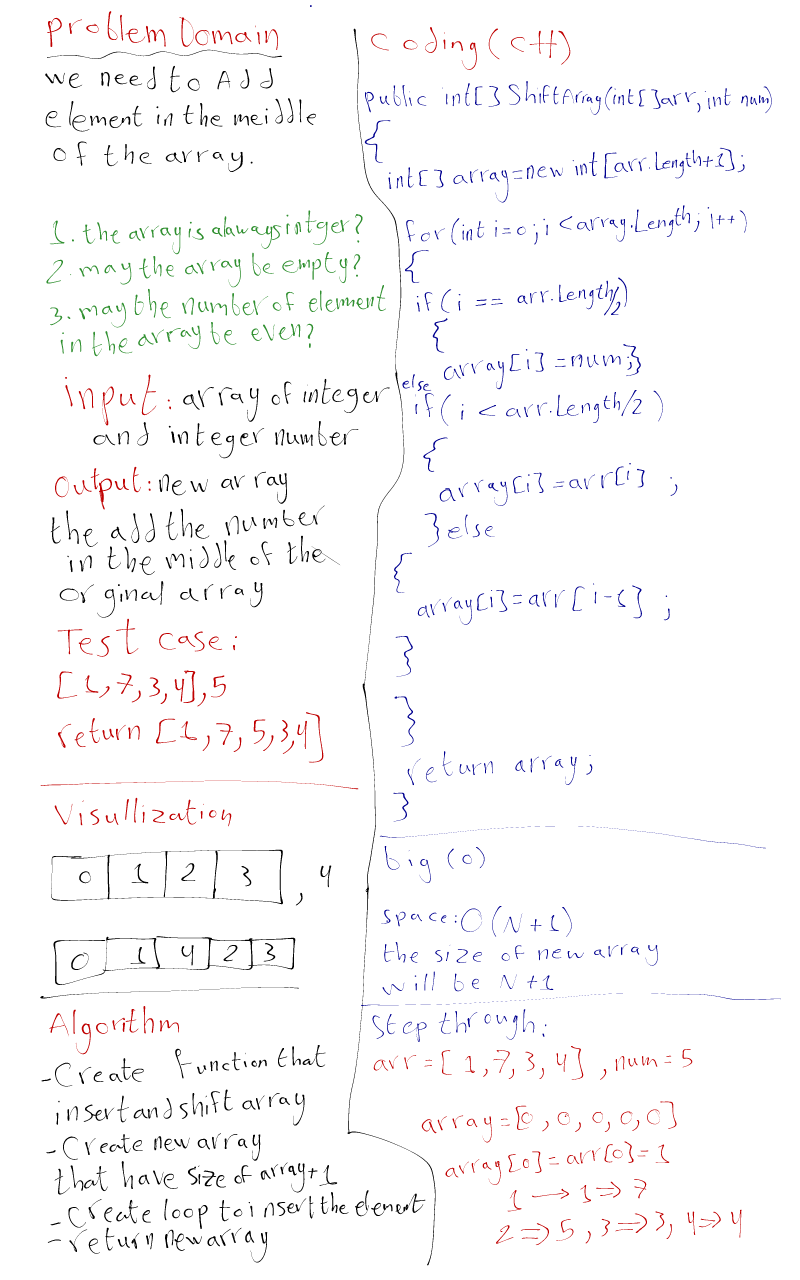 Problem Domain
we need to Add
element in the meiddle
of the array.
1. the array is alawaysintger?
2. may the array be empty?
3. may the number of element
in the array be even?
input: array of integer
and integer number
Output: new array
the add the number
in the middle of the
orginal array
Test case:
[1,7,3,4],5
return [1,7,5,3,4]
Visullization
0 1 2 3 , 4
0 1 4 2 3
Algorithm
-Create function that
insert and shift array
-Create new array
that have size of array+1
-Create loop to insert the element
-return new array
Coding (C#)
public int[] ShiftArray(int[]arr, int num)
{
int[] array=new int[arr.Length+1];
for(int i=0;i<array.Length;i++)
{
if(i == arr.Length/2)
{
array[i]=num;}
else
if(i < arr.Length/2)
{
array[i]=arr[i] ;
}else
{
array[i]=arr[i-1] ;
}
}
return array;
}
big (o)
space: O(N+1)
the size of new array
will be N+1
Step through:
arr=[1,7,3,4], num=5
array=[0,0,0,0,0]
array[0]=arr[0]=1
1 → 1 ⇒ 7
2 ⇒ 5, 3 ⇒ 3, 4 ⇒ 4